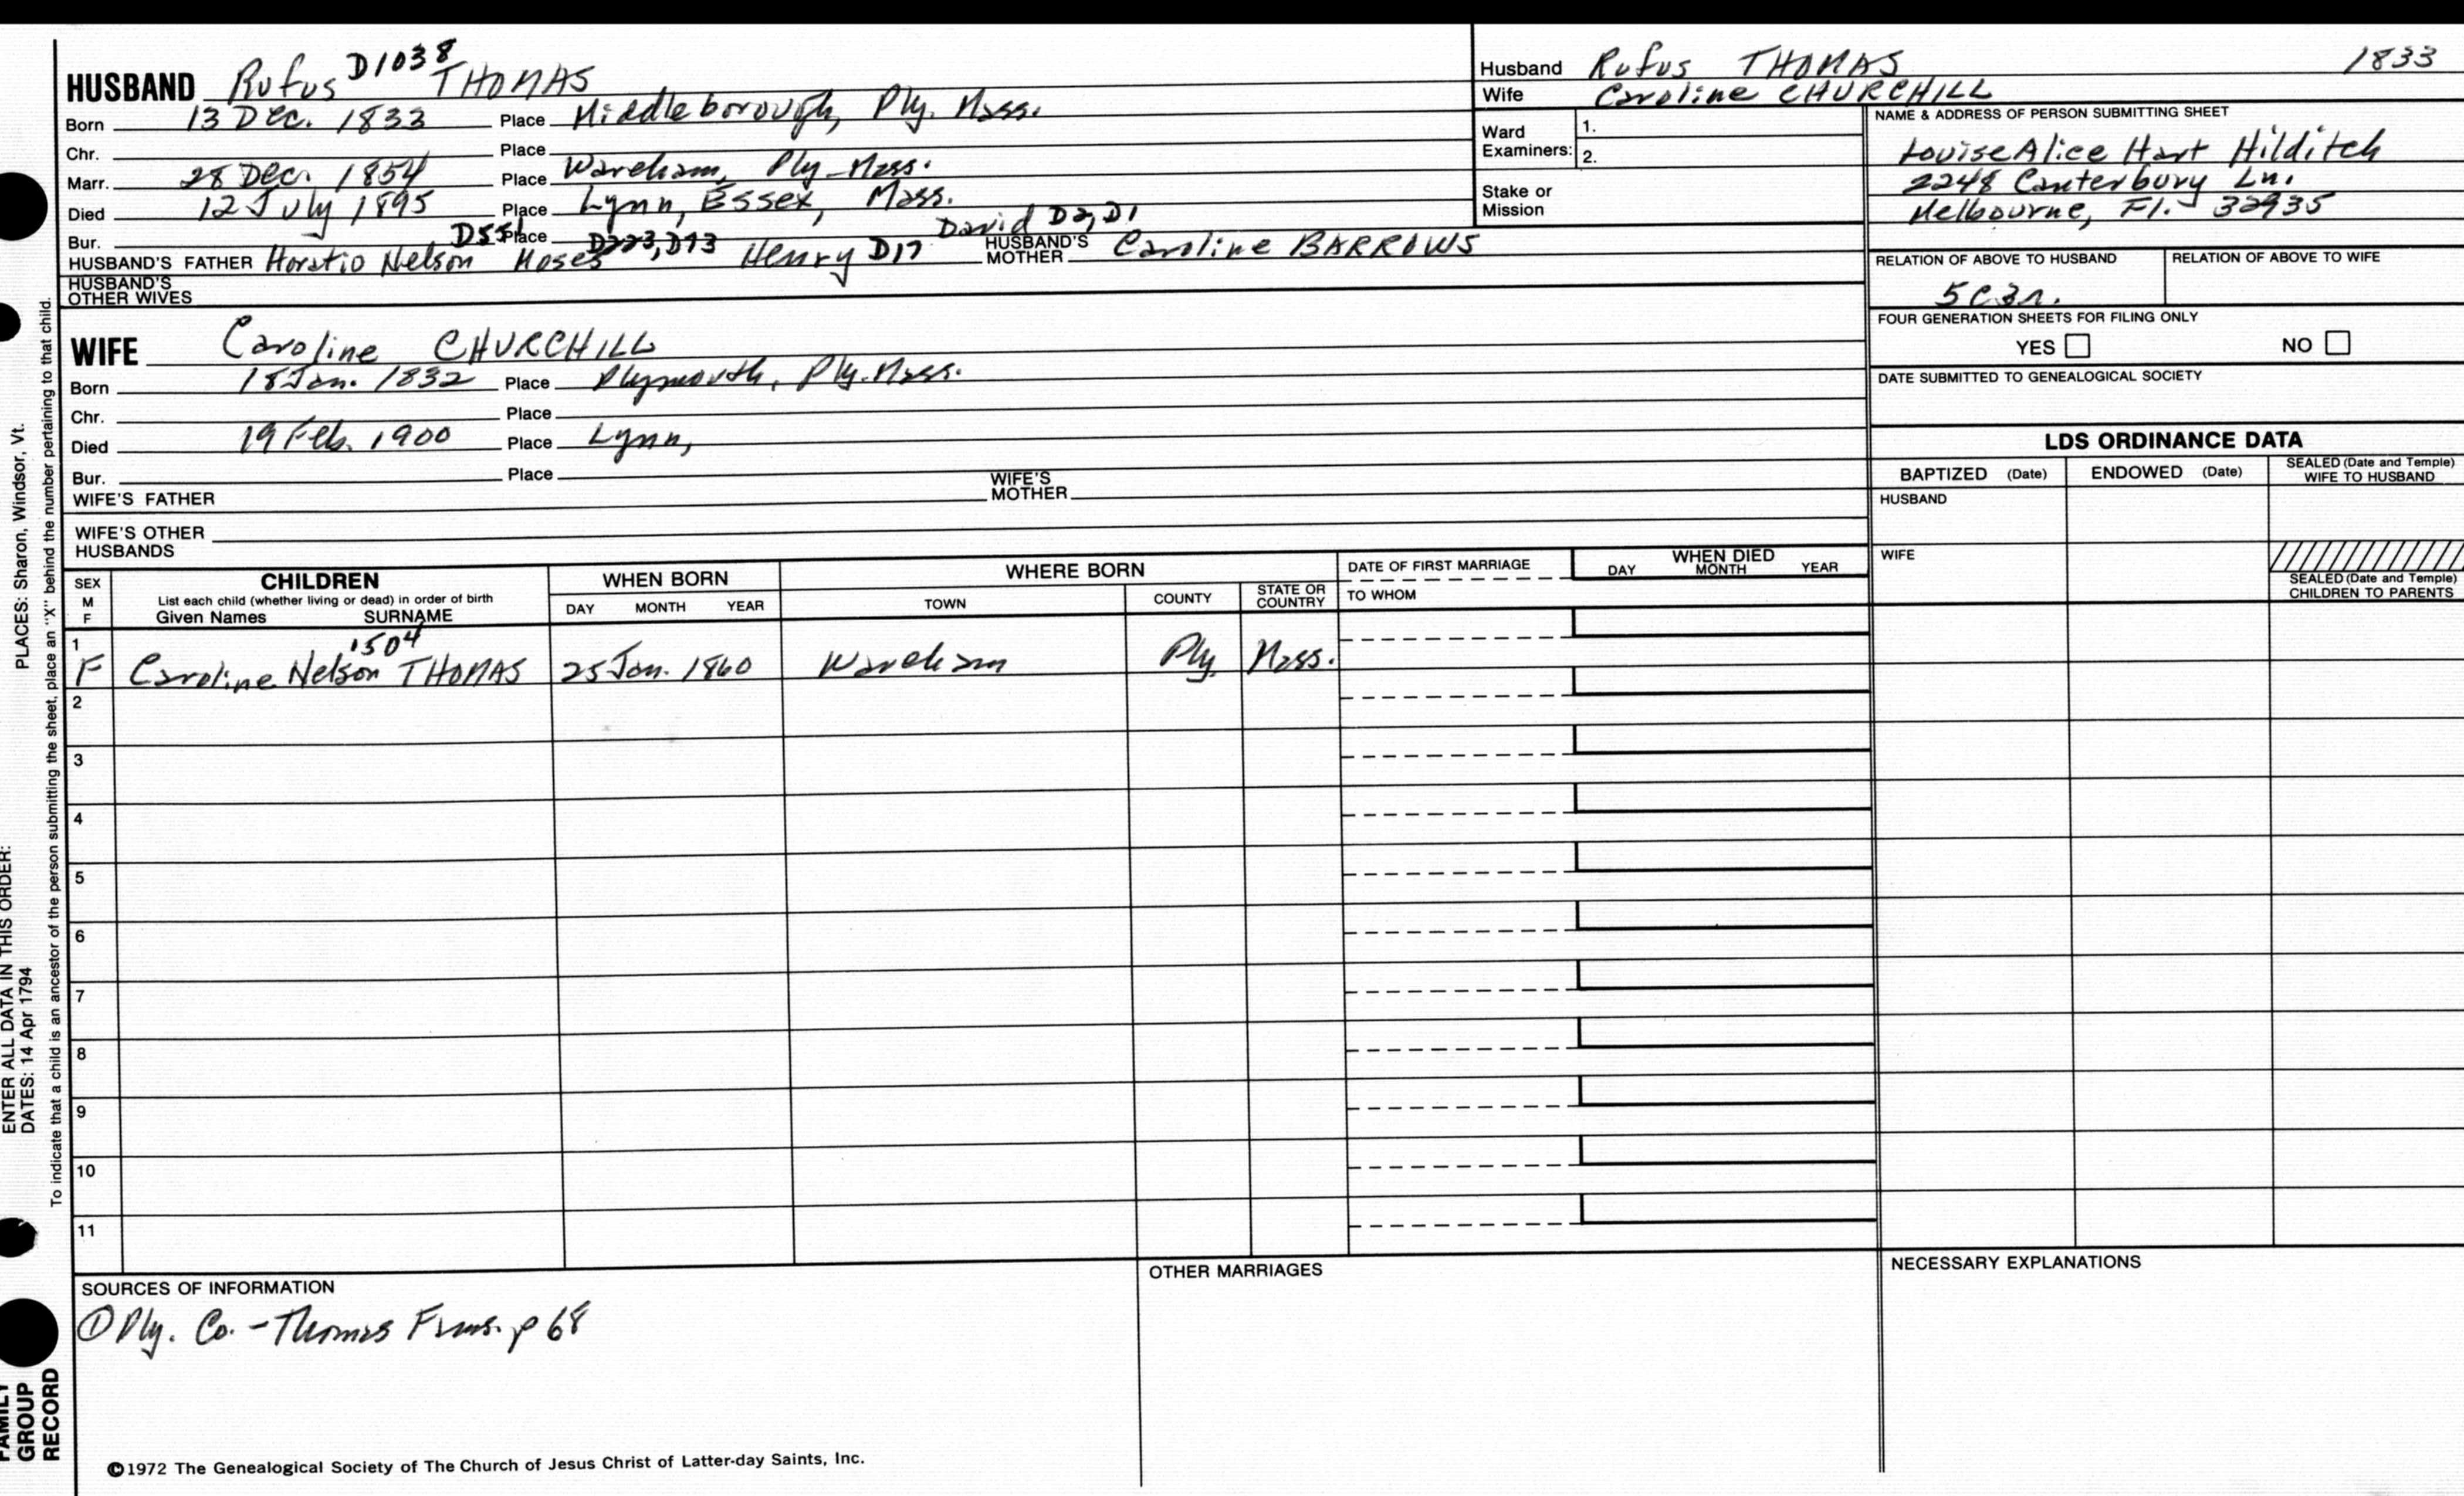 HUSBAND Rufus D1038 THOMAS
Born 13 Dec. 1833 Place Middleborough, Ply. Mass.
Chr. Place
Marr. 28 Dec. 1854 Place Wareham, Ply-Mass.
Died 12 July 1895 Place Lynn, Essex, Mass.
Bur. Place
HUSBAND'S FATHER Horatio Nelson D551 Moses D223, D73 Henry D17 David D2, D1 HUSBAND'S MOTHER Caroline BARROWS
HUSBAND'S OTHER WIVES
WIFE Caroline CHURCHILL
Born 18 Jan. 1832 Place Plymouth, Ply. Mass.
Chr. Place
Died 19 Feb. 1900 Place Lynn,
Bur. Place
WIFE'S FATHER WIFE'S MOTHER
WIFE'S OTHER HUSBANDS
Husband Rufus THOMAS 1833
Wife Caroline CHURCHILL
Ward Examiners: 1.
2.
Stake or Mission
NAME & ADDRESS OF PERSON SUBMITTING SHEET
Louise Alice Hart Hilditch
2248 Canterbury Ln.
Melbourne, Fl. 32935
RELATION OF ABOVE TO HUSBAND RELATION OF ABOVE TO WIFE
5C3r.
FOUR GENERATION SHEETS FOR FILING ONLY
YES NO
DATE SUBMITTED TO GENEALOGICAL SOCIETY
LDS ORDINANCE DATA
BAPTIZED (Date) ENDOWED (Date) SEALED (Date and Temple) WIFE TO HUSBAND
HUSBAND
WIFE
SEALED (Date and Temple) CHILDREN TO PARENTS
SEX M F CHILDREN WHEN BORN WHERE BORN DATE OF FIRST MARRIAGE WHEN DIED
List each child (whether living or dead) in order of birth
Given Names SURNAME DAY MONTH YEAR TOWN COUNTY STATE OR COUNTRY TO WHOM DAY MONTH YEAR
1 F Caroline Nelson 1504 THOMAS 25 Jan. 1860 Wareham Ply Mass.
2
3
4
5
6
7
8
9
10
11
SOURCES OF INFORMATION OTHER MARRIAGES NECESSARY EXPLANATIONS
① Ply. Co. - Thomas Fams. p 68
©1972 The Genealogical Society of The Church of Jesus Christ of Latter-day Saints, Inc.
FAMILY GROUP RECORD
ENTER ALL DATA IN THIS ORDER:
DATES: 14 Apr 1794 PLACES: Sharon, Windsor, Vt.
To indicate that a child is an ancestor of the person submitting the sheet, place an "X" behind the number pertaining to that child.